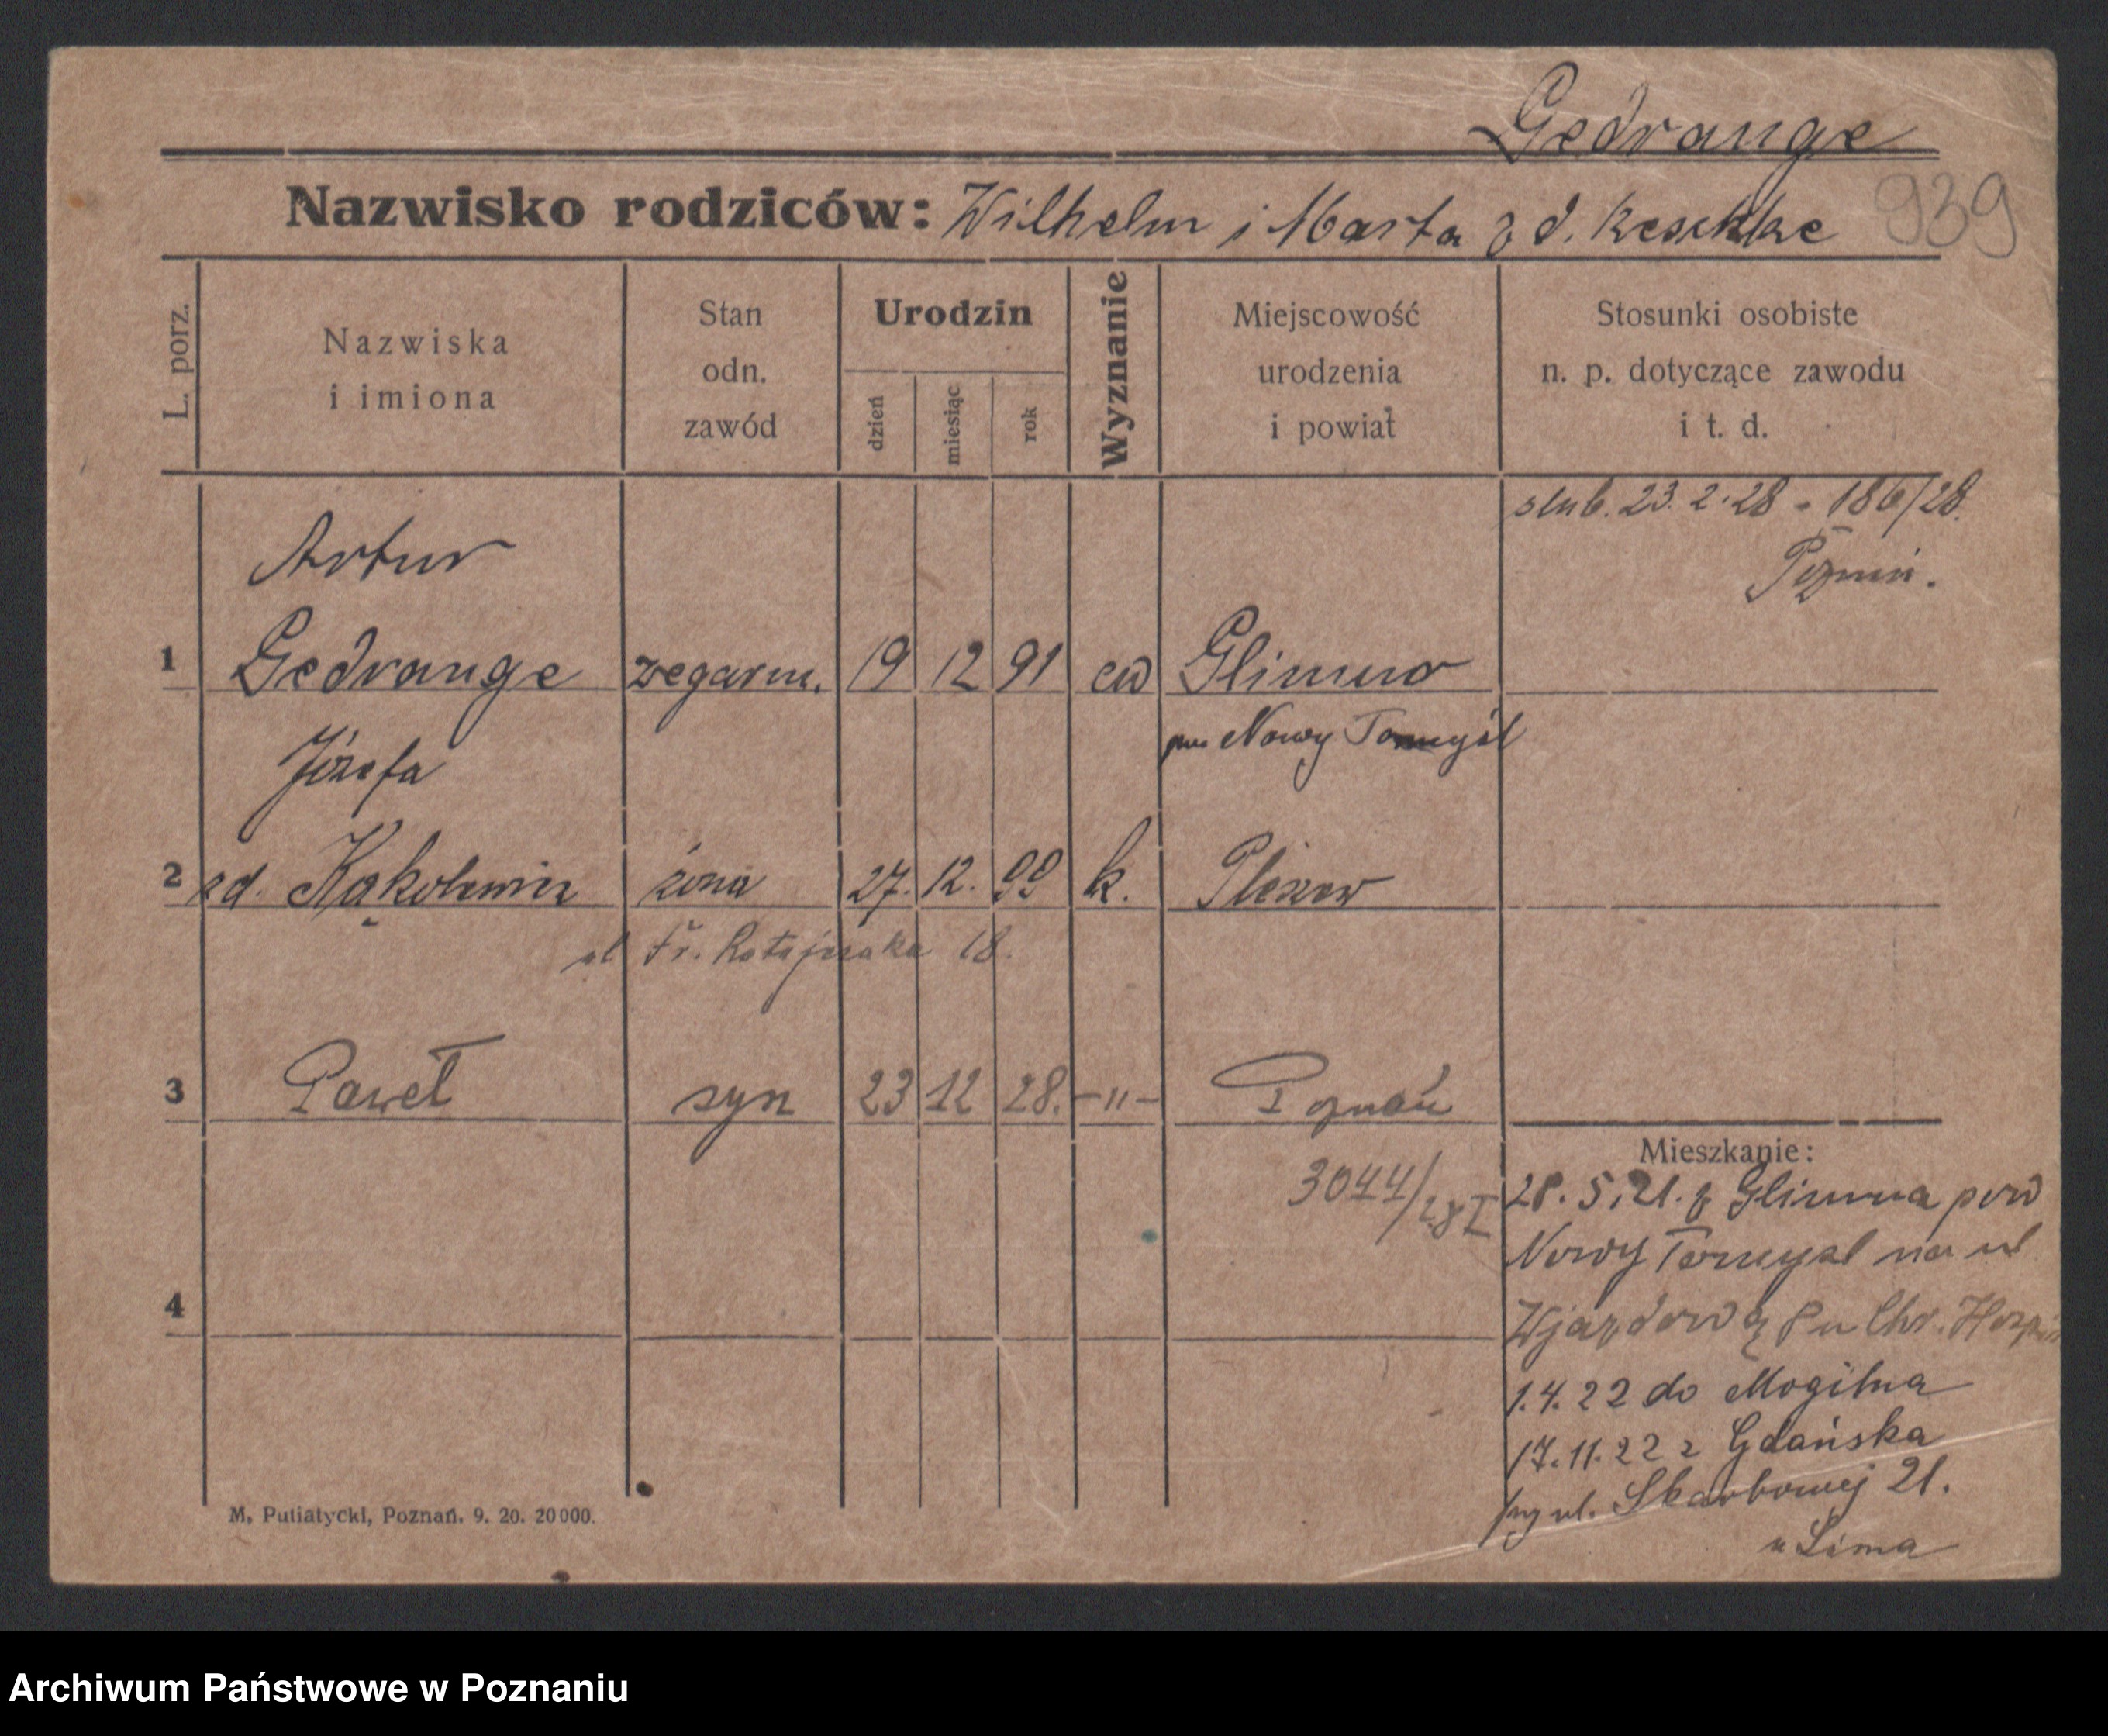 Gedrange
939
Nazwisko rodziców: Wilhelm i Marta z d. Keschke
L. porz.
Nazwiska
i imiona
Stan
odn.
zawód
Urodzin
dzień
miesiąc
rok
Wyznanie
Miejscowość
urodzenia
i powiat
Stosunki osobiste
n. p. dotyczące zawodu
i t. d.
slub. 23. 2. 28 - 186/28.
Poznań.
Artur
1 Gedrange zegarm. 19 12 91 ew Glinno
pow Nowy Tomyśl
Józefa
2 z d. Kąkolewicz żona 27. 12. 99 k. Pleszew
ul Fr. Ratajczaka 18.
3 Paweł syn 23 12 28. -"- Poznań
3044/28 I
4
Mieszkanie:
28. 5. 21. z Glinna pow
Nowy Tomysl na ul
Wjazdową 8 u Chr. Hospic
1. 4. 22 do Mogilna
17. 11. 22 z Gdańska
przy ul. Skarbowej 21.
u Lima
M. Putiatycki, Poznań. 9. 20. 20000.
Archiwum Państwowe w Poznaniu